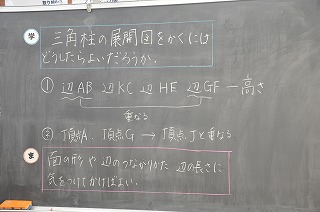 学 三角柱の展開図をかくには
どうしたらよいだろうか.
① 辺AB 辺KC 辺HE 辺GF — 高さ
重なる
② 頂点A. 頂点G → 頂点Jと重なる
ま 面の形や辺のつながりかた 辺の長さに
気をつけてかけばよい.